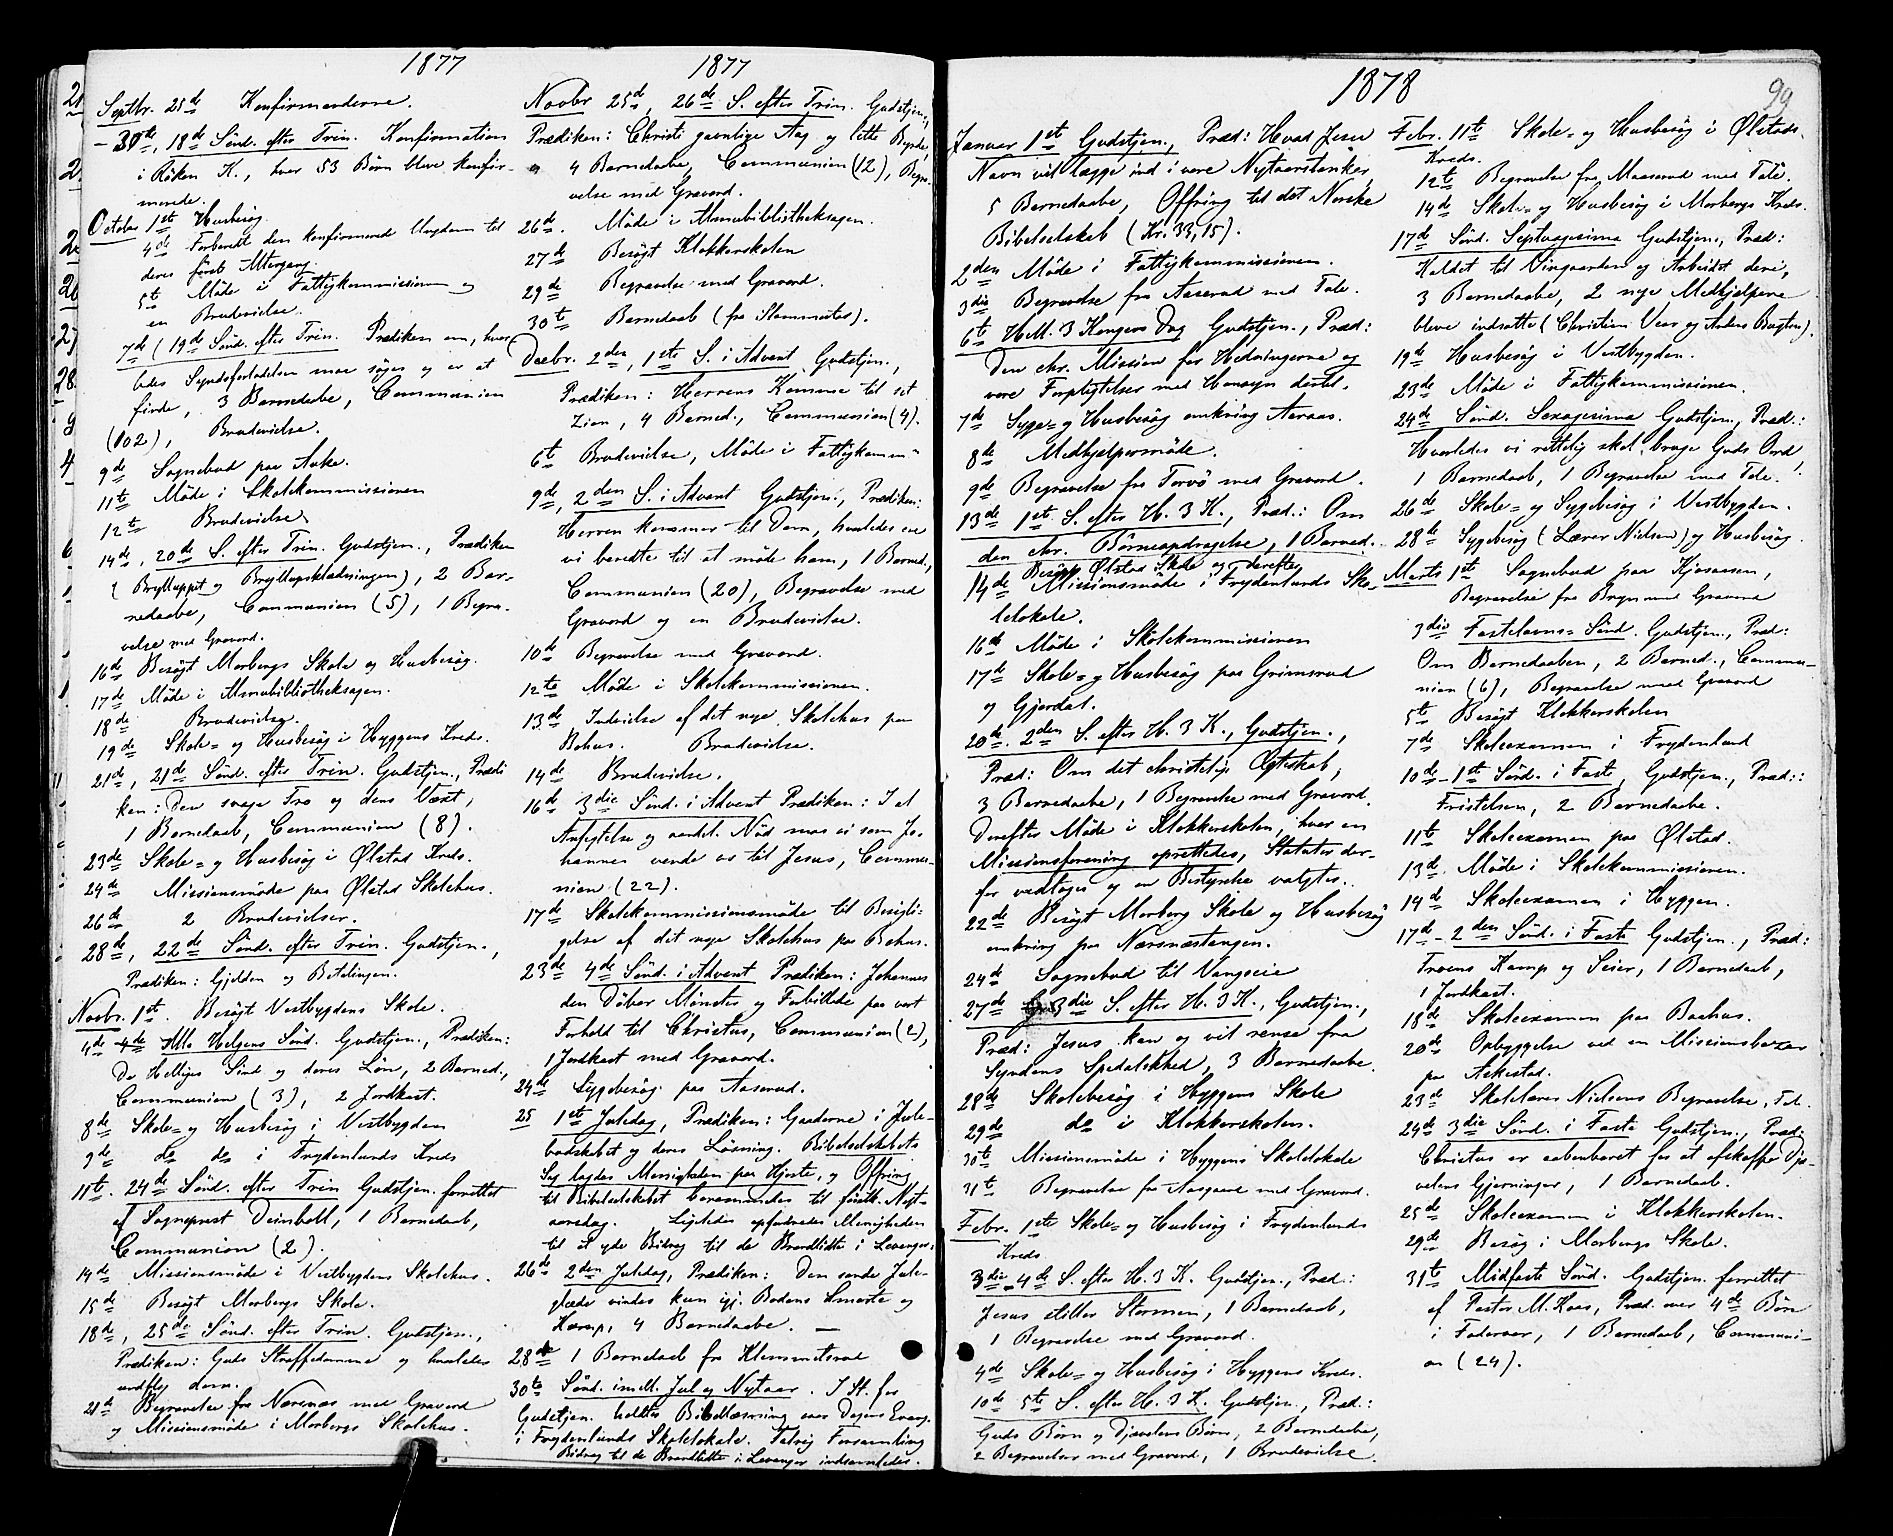 1877
Septbr. 25de Konfirmanderne.
– 30te, 18de Sönd. efter Trin. Konfirmation
i Röken K., hvor 53 Börn bleve konfir-
merede.
October 1ste Husbesög.
4de Forberedt den konfirmerede Ungdom til
deres förste Altergang.
5te Möde i Fattigkommissionen og
en Brudevielse.
7de (19de Sönd. efter Trin. Prædiken om, hvor-
ledes Syndsforladelsen maa söges og er at
finde, 3 Barnedaabe, Communion
(102), Brudevielse.
9de Sognebud paa Aske.
11te Möde i Skolekommissionen
12te Brudevielse
14de, 20de S. efter Trin. Gudstjen., Prædiken
(Brylluppet og Bryllupsklædningen), 2 Bar-
nedaabe, Communion (5), 1 Begra-
velse med Gravord.
16de Besögt Morbergs Skole og Husbesög.
17de Möde i Almubibliotheksagen.
18de Brudevielse.
19de Skole- og Husbesög i Hyggens Kreds.
21de, 21de Sönd. efter Trin. Gudstjen., Prædi
ken: Den svage Tro og dens Væxt,
1 Barnedaab, Communion (8).
23de Skole- og Husbesög i Ølstad Kreds.
24de Missionsmöde paa Ølstad Skolehus.
26de 2 Brudevielser.
28de, 22de Sönd. efter Trin. Gudstjen.,
Prædiken: Gjelden og Betalingen.
Novbr. 1ste. Besögt Vestbygdens Skole.
4de 4de Alle Helgens Sönd. Gudstjen., Prædiken:
De Helliges Sind og deres Lön, 2 Barned.,
Communion (3), 2 Jordkast.
8de Skole- og Husbesög i Vestbygden
9de do do i Frydenlunds Kreds
11te. 24de Sönd. efter Trin Gudstjen. forrettet
af Sogneprest Deinboll, 1 Barnedaab,
Communion (2).
14de Missionsmöde i Vestbygdens Skolehus.
15de Besögt Morbergs Skole.
18de, 25de Sönd. efter Trin. Gudstjen.,
Prædiken: Guds Straffedomme og hvorledes
undfly dem.
21de Begravelse fra Nærsnes med Gravord
og Missionsmöde i Morbergs Skolehus.
1877
Novbr 25de, 26de S. efter Trin. Gudstjen.,
Prædiken: Christi gavnlige Aag og lette Byrde,
4 Barnedaabe, Communion (12), Begra-
velse med Gravord.
26de. Möde i Almubibliotheksagen.
27de Besögt Klokkerskolen
29de Begravelse med Gravord.
30te Barnedaab (fra Slemmestad).
Decbr. 2den, 1ste S. i Advent Gudstjen.,
Prædiken: Herrens Komme til sit
Zion, 4 Barned., Communion (4).
6te Brudevielse, Möde i Fattigkomm-
9de, 2den S. i Advent Gudstjen., Prædiken:
Herren kommer til Dom, hvorledes ere
vi beredte til at möde ham, 1 Barned.,
Communion (20), Begravelse med
Gravord og en Brudevielse.
10de Begravelse med Gravord.
12te Möde i Skolekommissionen.
13de Indvielse af det nye Skolehus paa
Bohus. Brudevielse.
14de Brudevielse.
16de 3die Sönd. i Advent Prædiken: I al
Anfegtelse og aandel. Nöd maa vi som Jo-
hannes vende os til Jesus, Commu-
nion (22).
17de Skolekommissionsmöde til Besigti-
gelse af det nye Skolehus paa Bohus.
23de 4de Sönd. i Advent Prædiken: Johannes
den Döber Mönster og Forbillede paa vort
Forhold til Christus, Communion (2),
1 Jordkast med Gravord.
24de Sygebesög paa Aaserud.
25 1ste Juledag, Prædiken: Gaaderne i Jule-
budskabet og deres Lösning. Bibelselskabets
Sag lagdes Menigheden paa Hjerte, og Offring
til Bibelselskabet berammedes til förstk. Nyt-
aarsdag. Ligeledes opfordredes Menigheden
til at yde Bidrag til de Brandlidte i Levanger.
26de 2den Juledag, Prædiken: Den sande Jule-
glæde vindes kun igj. Bodens Smerte og
Kamp, 4 Barnedaabe. —
28de 1 Barnedaab fra Klemmetsrud
30te Sönd. imell. Jul og Nytaar. I St. for
Gudstjen. holdtes Bibellæsning over Dagens Evang.
i Frydenlunds Skolelokale. Talrig Forsamling
Bidrag til de Brandlidte i Levanger indsamledes.
1878
99
Januar 1ste Gudstjen., Præd: Hvad Jesu
Navn vil lægge ind i vore Nytaarstanker
5 Barnedaabe, Offring til det Norske
Bibelselskab (Kr. 33,15).
2den Möde i Fattigkommissionen.
3die Begravelse fra Aaserud med Tale.
6te H.M. 3 Kongers Dag Gudstjen., Præd:
Den chr. Mission for Hedningerne og
vore Forpligtelser med Hensyn dertil.
7de Syge- og Husbesög omkring Aaraas.
8de Medhjelpermöde.
9de Begravelse fra Torvö med Gravord.
13de 1ste S. efter H. 3 K., Præd.: Om
den chr. Börneopdragelse, 1 Barned.
Besögt Ølstad Skole og derefter
14de Missionsmöde i Frydenlunds Sko-
lelokale.
16de Möde i Skolekommissionen
17de Skole- og Husbesög paa Grimsrud
og Gjerdal.
20de. 2den S. efter H. 3 K., Gudstjen.,
Præd: Om det christelige Ægteskab,
3 Barnedaabe, 1 Begravelse med Gravord.
Derefter Möde i Klokkerskolen, hvor en
Missionsforening oprettedes, Statuter der-
for vedtoges og en Bestyrelse valgtes.
22de Besögt Morberg Skole og Husbesög
omkring paa Nærsnæstangen.
24de Sognebud til Vangseie
27de 3die S. efter H. 3 K., Gudstjen.,
Præd: Jesus kan og vil rense fra
Syndens Spedalskhed, 3 Barnedaabe
28de Skolebesög i Hyggens Skole
29de do i Klokkerskolen.
30te Missionsmöde i Hyggens Skolelokale
31te Begravelse fra Aasgaard med Gravord.
Febr. 1ste Skole- og Husbesög i Frydenlunds
Kreds.
3die 4de S. efter H. 3 K. Gudstjen., Præd:
Jesus stiller Stormen, 1 Barnedaab,
1 Begravelse med Gravord.
4de Skole- og Husbesög i Hyggens Kreds.
10de 5te S. efter H. 3 K. Gudstjen., Præd.:
Guds Börn og Djævelens Börn, 2 Barnedaabe,
2 Begravelser med Gravord, 1 Brudevielse.
Febr. 11te Skole- og Husbesög i Ølstads
Kreds.
12te Begravelse fra Maaserud med Tale.
14de Skole- og Husbesög i Morbergs Kreds.
17de Sönd. Septuagesima Gudstjen., Præd:
Kaldet til Vingaarden og Arbeidet deri,
3 Barnedaabe, 2 nye Medhjelpere
bleve indsatte (Christian Vear og Anders Bogten).
19de Husbesög i Vestbygden.
23de Möde i Fattigkommissionen.
24de Sönd. Sexagesima Gudstjen., Præd.:
Hvorledes vi rettelig skal bruge Guds Ord
1 Barnedaab, 1 Begravelse med Tale.
26de Skole- og Sygebesög i Vestbygden.
28de Sygebesög (Lærer Nielsen) og Husbesög.
Marts 1ste Sognebud paa Kjosaasen,
Begravelse fra Bryn med Gravord
3die Fastelavns-Sönd. Gudstjen., Præd:
Om Barnedaaben, 2 Barned., Commu-
nion (6), Begravelse med Gravord
5te Besögt Klokkerskolen
7de Skoleexamen i Frydenlund
10de – 1ste Sönd. i Faste, Gudstjen., Præd.:
Fristelsen, 2 Barnedaabe.
11te Skoleexamen paa Ølstad.
13de Möde i Skolekommissionen.
14de Skoleexamen i Hyggen.
17de – 2den Sönd. i Faste Gudstjen., Præd:
Troens Kamp og Seier, 1 Barnedaab,
1 Jordkast.
18de Skoleexamen paa Baahus.
20de Opbyggelse ved en Missionsbazar
paa Askestad.
23de Skolelærer Nielsens Begravelse, Tale.
24de 3die Sönd. i Faste Gudstjen., Præd:
Christus er aabenbaret for at afskaffe Djæ-
velens Gjerninger, 1 Barnedaab.
25de Skoleexamen i Klokkerskolen.
29de Besög i Morbergs Skole.
31te Midfaste Sönd. Gudstjen. forrettet
af Pastor M. Koss, Præd. over 4de Bön
i Fadervor, 1 Barnedaab, Communi-
on (24).